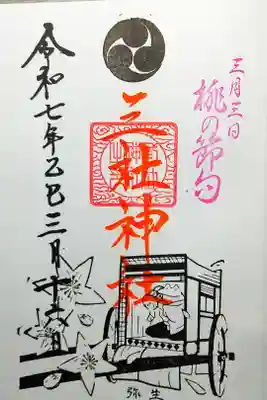 三月三日
桃の節句
三社神社
令和七年乙巳三月十六日
弥生